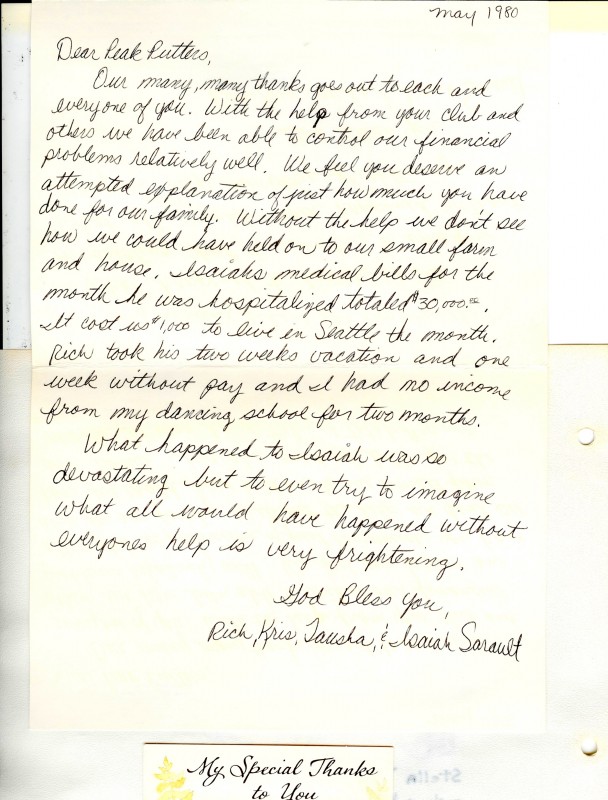 May 1980
Dear Peak Putters,
Our many, many thanks goes out to each and
everyone of you. With the help from your club and
others we have been able to control our financial
problems relatively well. We feel you deserve an
attempted explanation of just how much you have
done for our family. Without the help we don't see
how we could have held on to our small farm
and house. Isaiahs medical bills for the
month he was hospitalized totaled $30,000.00.
It cost us $1,000 to live in Seattle the month.
Rich took his two weeks vacation and one
week without pay and I had no income
from my dancing school for two months.
What happened to Isaiah was so
devastating but to even try to imagine
what all would have happened without
everyones help is very frightening.
God Bless You,
Rich, Kris, Tausha, & Isaiah Sarault
My Special Thanks
to You